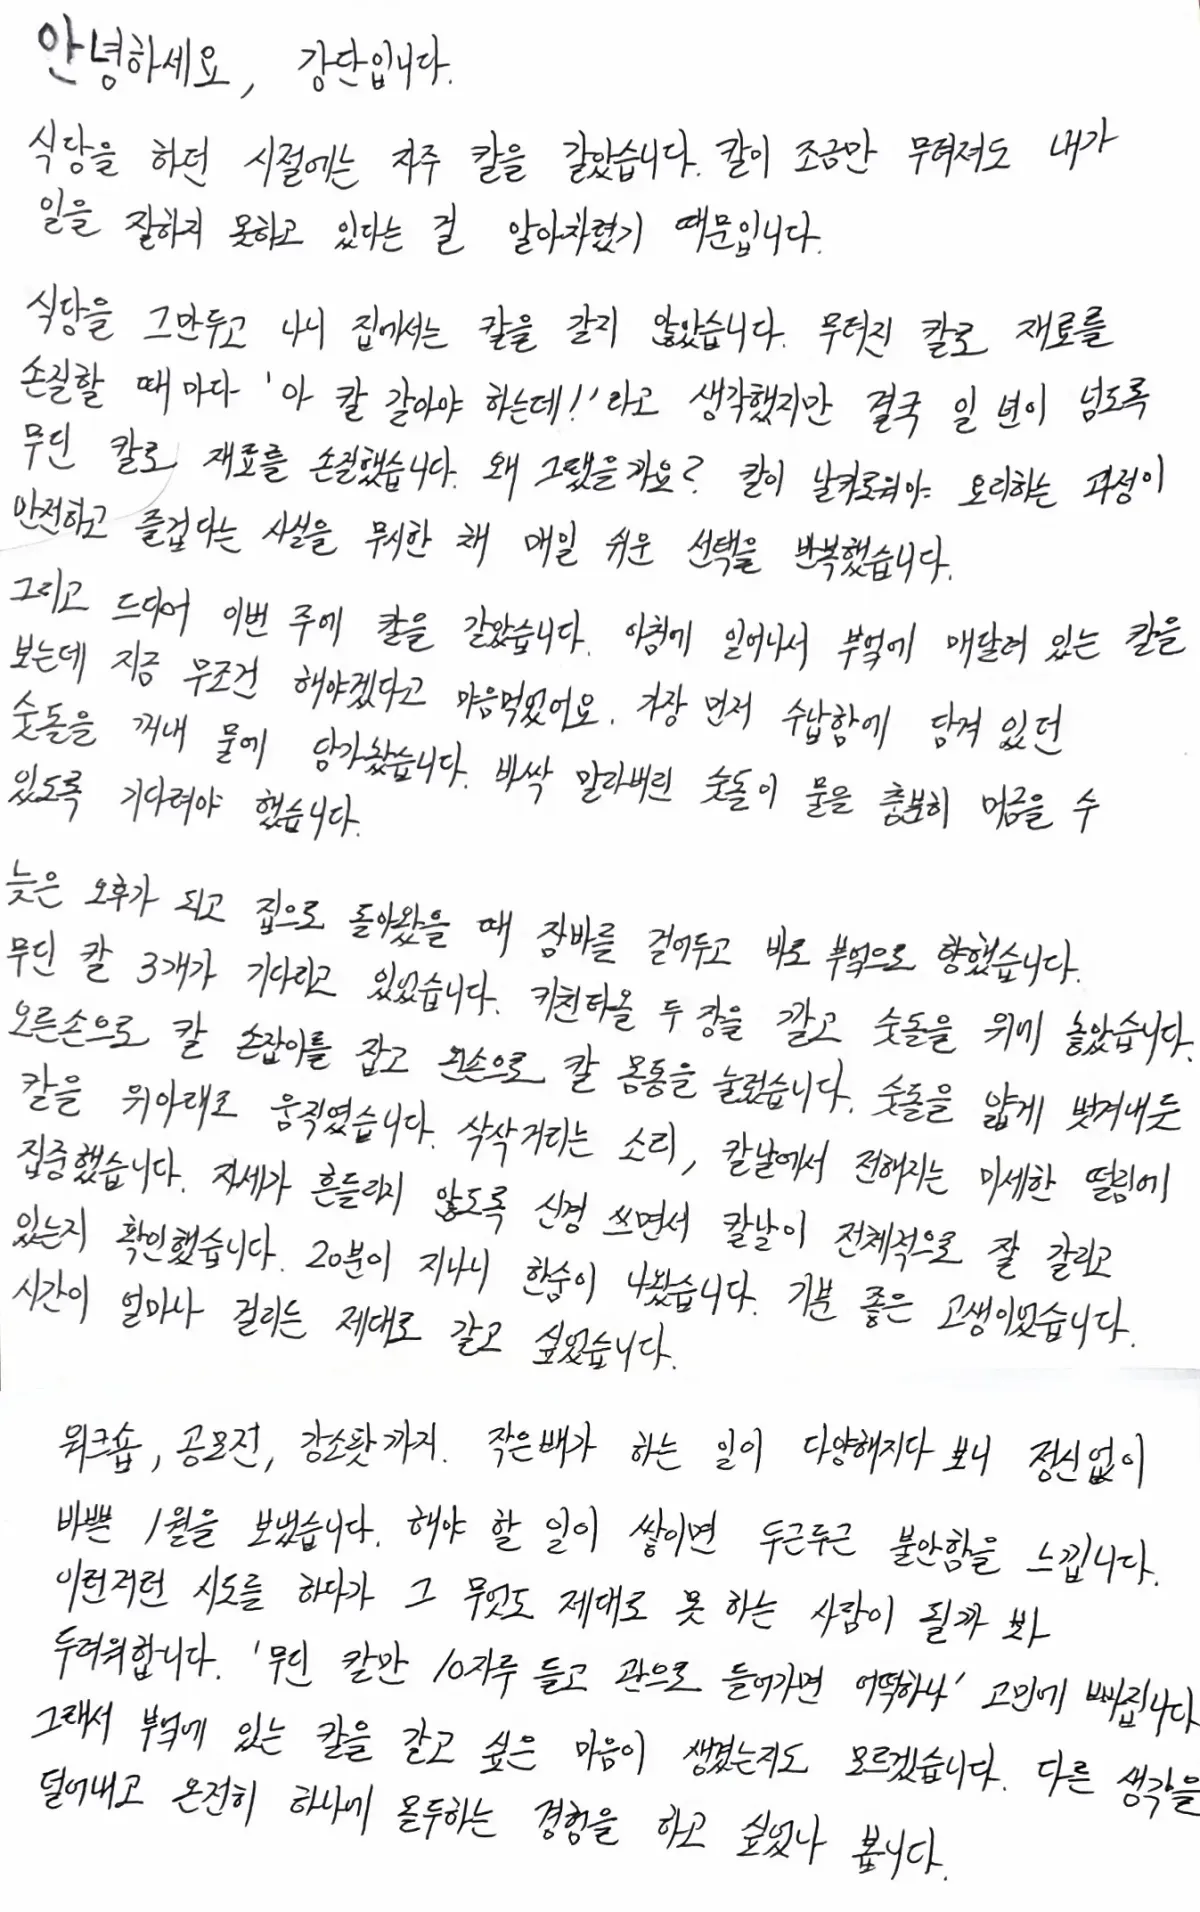 안녕하세요, 강단입니다.
식당을 하던 시절에는 자주 칼을 갈았습니다. 칼이 조금만 무뎌져도 내가
일을 잘하지 못하고 있다는 걸 알아차렸기 때문입니다.
식당을 그만두고 나니 집에서는 칼을 갈지 않았습니다. 무뎌진 칼로 재료를
손질할 때마다 '아 칼 갈아야 하는데!'라고 생각했지만 결국 일 년이 넘도록
무딘 칼로 재료를 손질했습니다. 왜 그랬을까요? 칼이 날카로워야 요리하는 과정이
안전하고 즐겁다는 사실을 무시한 채 매일 쉬운 선택을 반복했습니다.
그리고 드디어 이번 주에 칼을 갈았습니다. 아침에 일어나서 부엌에 매달려 있는 칼을
보는데 지금 무조건 해야겠다고 마음먹었어요. 가장 먼저 수납함에 담겨 있던
숫돌을 꺼내 물에 담가놨습니다. 바싹 말라버린 숫돌이 물을 충분히 머금을 수
있도록 기다려야 했습니다.
늦은 오후가 되고 집으로 돌아왔을 때 장바를 걸어두고 바로 부엌으로 향했습니다.
무딘 칼 3개가 기다리고 있었습니다. 키친타올 두 장을 깔고 숫돌을 위에 놓았습니다.
오른손으로 칼 손잡이를 잡고 왼손으로 칼 몸통을 눌렀습니다. 숫돌을 얇게 벗겨내듯
칼을 위아래로 움직였습니다. 삭삭거리는 소리, 칼날에서 전해지는 미세한 떨림에
집중했습니다. 자세가 흔들리지 않도록 신경 쓰면서 칼날이 전체적으로 잘 갈리고
있는지 확인했습니다. 20분이 지나니 한숨이 나왔습니다. 기분 좋은 고생이었습니다.
시간이 얼마나 걸리든 제대로 갈고 싶었습니다.
워크숍, 공모전, 강소팟까지. 작은배가 하는 일이 다양해지다 보니 정신없이
바쁜 1월을 보냈습니다. 해야 할 일이 쌓이면 두근두근 불안함을 느낍니다.
이런저런 시도를 하다가 그 무엇도 제대로 못 하는 사람이 될까 봐
두려워합니다. '무딘 칼만 10자루 들고 관으로 들어가면 어떡하나' 고민에 빠집니다
그래서 부엌에 있는 칼을 갈고 싶은 마음이 생겼는지도 모르겠습니다. 다른 생각을
덜어내고 온전히 하나에 몰두하는 경험을 하고 싶었나 봅니다.